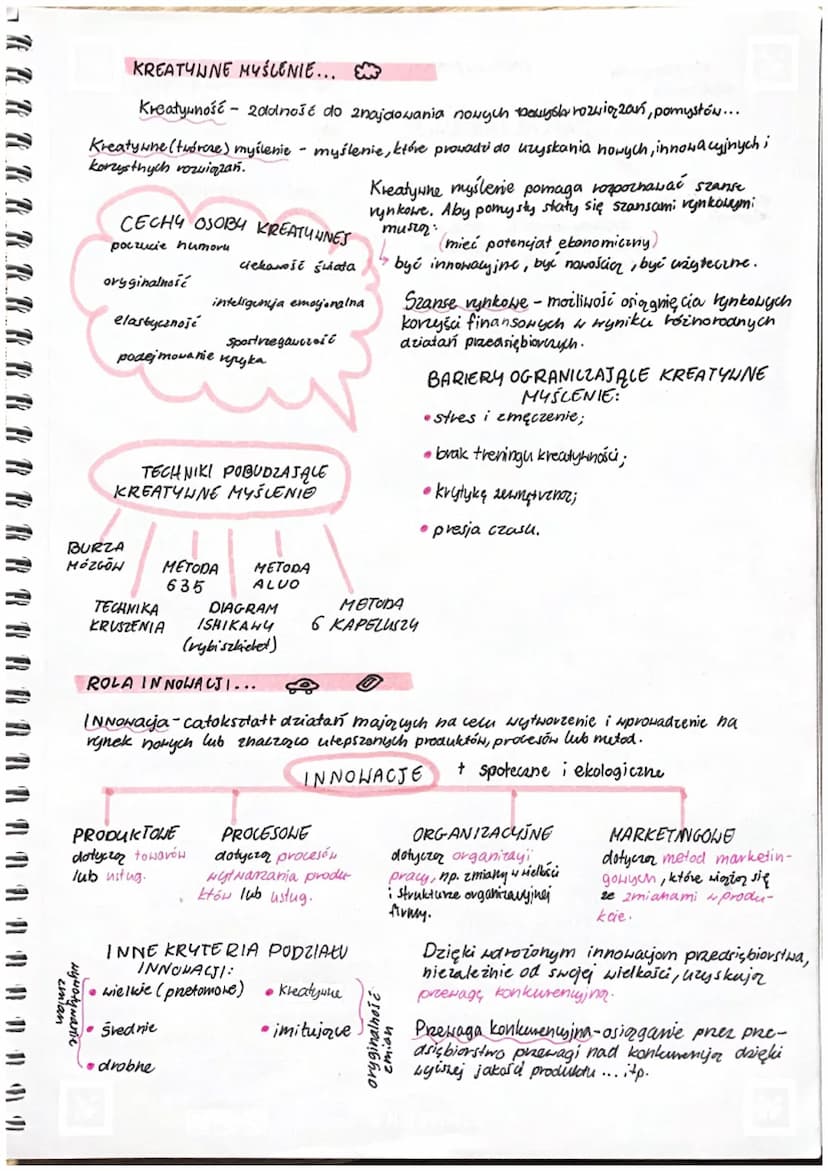 KREATYWNE MYŚLENIE...
Kreatywność - zdolność do znajdowania nowych rozwiązań, pomysłów...
Kreatywne (twórcze) myślenie - myślenie, które prowadzi do uzyskania nowych, innowacyjnych i
korzystnych rozwiązań.
CECHY OSOBY KREATYWNEJ
poczucie humoru
ciekawość świata
oryginalność
inteligencja emocjonalna
elastyczność
spostrzegawczość
podejmowanie ryzyka
Kreatywne myślenie pomaga rozpoznawać szanse
rynkowe. Aby pomysły stały się szansami rynkowymi
muszą:
(mieć potencjał ekonomiczny)
być innowacyjne, być nowością, być użyteczne.
Szanse rynkowe - możliwość osiągnięcia rynkowych
korzyści finansowych w wyniku różnorodnych
działań przedsiębiorczych.
BARIERY OGRANICZAJĄCE KREATYWNE
MYŚLENIE:
• stres i zmęczenie;
• brak treningu kreatywności;
• krytykę zewnętrzną;
• presja czasu.
TECHNIKI POBUDZAJĄCE
KREATYWNE MYŚLENIE
BURZA
MÓZGÓW
METODA
635
METODA
ALUO
TECHNIKA
KRUSZENIA
DIAGRAM
ISHIKAWY
(rybi szkielet)
METODA
6 KAPELUSZY
ROLA INNOWACJI...
Innowacja - całokształt działań mających na celu wytworzenie i wprowadzenie na
rynek nowych lub znacząco ulepszonych produktów, procesów lub metod.
INNOWACJE + społeczne i ekologiczne
PRODUKTOWE
dotyczą towarów
lub usług.
PROCESOWE
dotyczą procesów
wytwarzania produk-
któw lub usług.
ORGANIZACYJNE
dotyczą organizacji
pracy, np. zmiany w wielkości
i strukturze organizacyjnej
firmy.
MARKETINGOWE
dotyczą metod marketin-
gowych, które wiążą się
ze zmianami w produ-
kcie.
INNE KRYTERIA PODZIAŁU
INNOWACJI:
wywoływanie
zmian
• wielkie (przełomowe)
• średnie
• drobne
• kreatywne
• imitujące
oryginalność
zmian
Dzięki wdrożonym innowacjom przedsiębiorstwa,
niezależnie od swojej wielkości, uzyskują
przewagę konkurencyjną.
Przewaga konkurencyjna - osiąganie przez prze-
dsiębiorstwo przewagi nad konkurencją dzięki
wyższej jakości produktu ... itp.